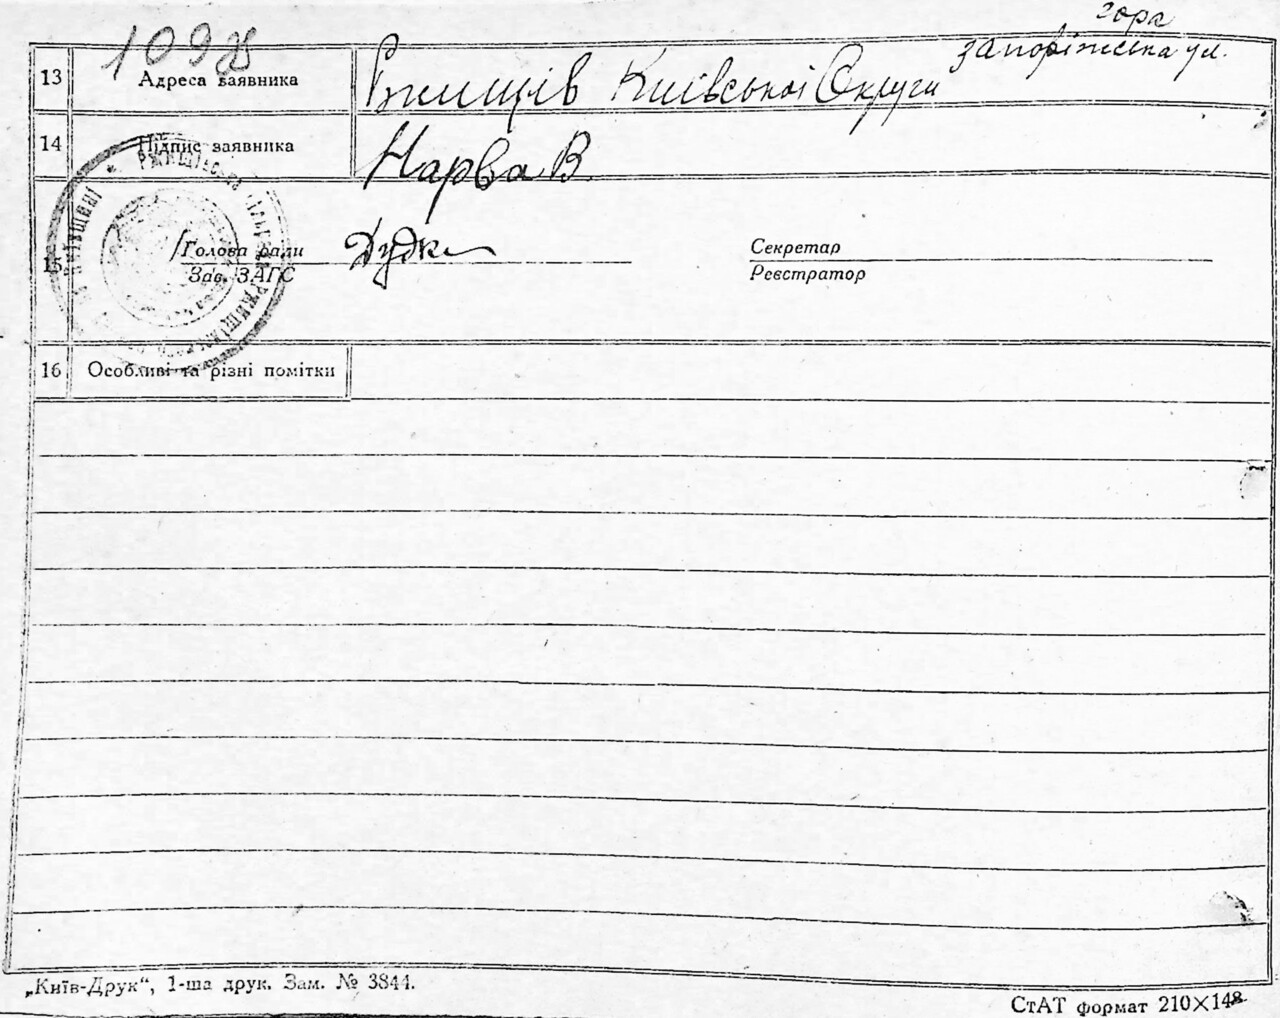 109
гора
запоріжська ул.
13 Адреса заявника Ржищів Київської Округи
14 Підпис заявника Нарва В.
15 Голова ради Дудка Секретар
Зав. ЗАГС Реєстратор
16 Особливі та різні помітки
„Київ-Друк“, 1-ша друк. Зам. № 3844.
СтАТ формат 210×148